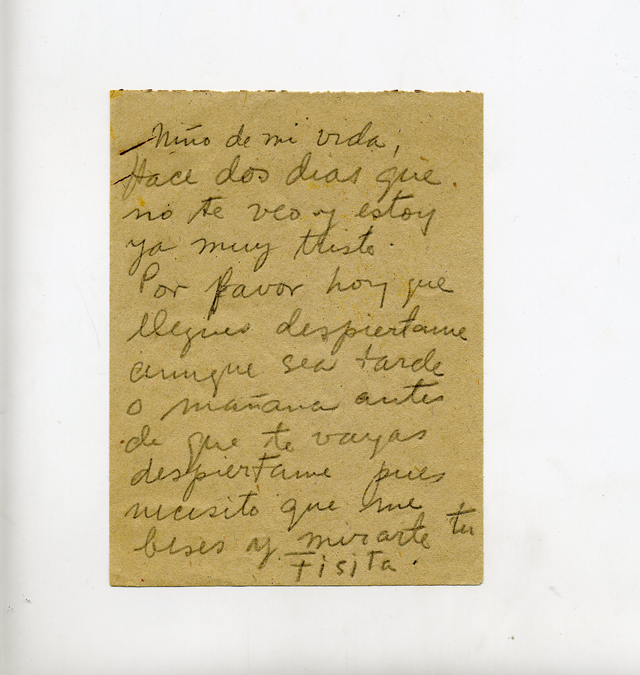 Niño de mi vida,
Hace dos dias que
no te veo y estoy
ya muy triste.
Por favor hoy que
llegues despiertame
aunque sea tarde
o mañana antes
de que te vayas
despiertame pues
necesito que me
beses y mirarte tu
Fisita.